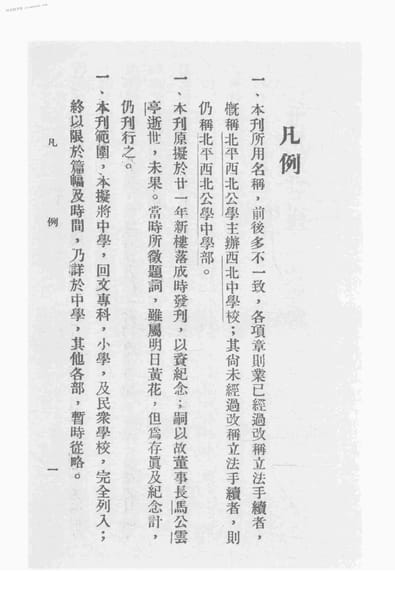 凡例
一、本刊所用名稱，前後多不一致，各項章則業已經過改稱立法手續者，
概稱北平西北公學主辦西北中學校；其尚未經過改稱立法手續者，則
仍稱北平西北公學中學部。
一、本刊原擬於廿一年新樓落成時發刊，以資紀念；嗣以故董事長馬公雲
亭逝世，未果。當時所徵題詞，雖屬明日黃花，但爲存眞及紀念計，
仍刊行之。
一、本刊範圍，本擬將中學，回文專科，小學，及民衆學校，完全列入；
終以限於篇幅及時間，乃詳於中學，其他各部，暫時從略。
凡例
一